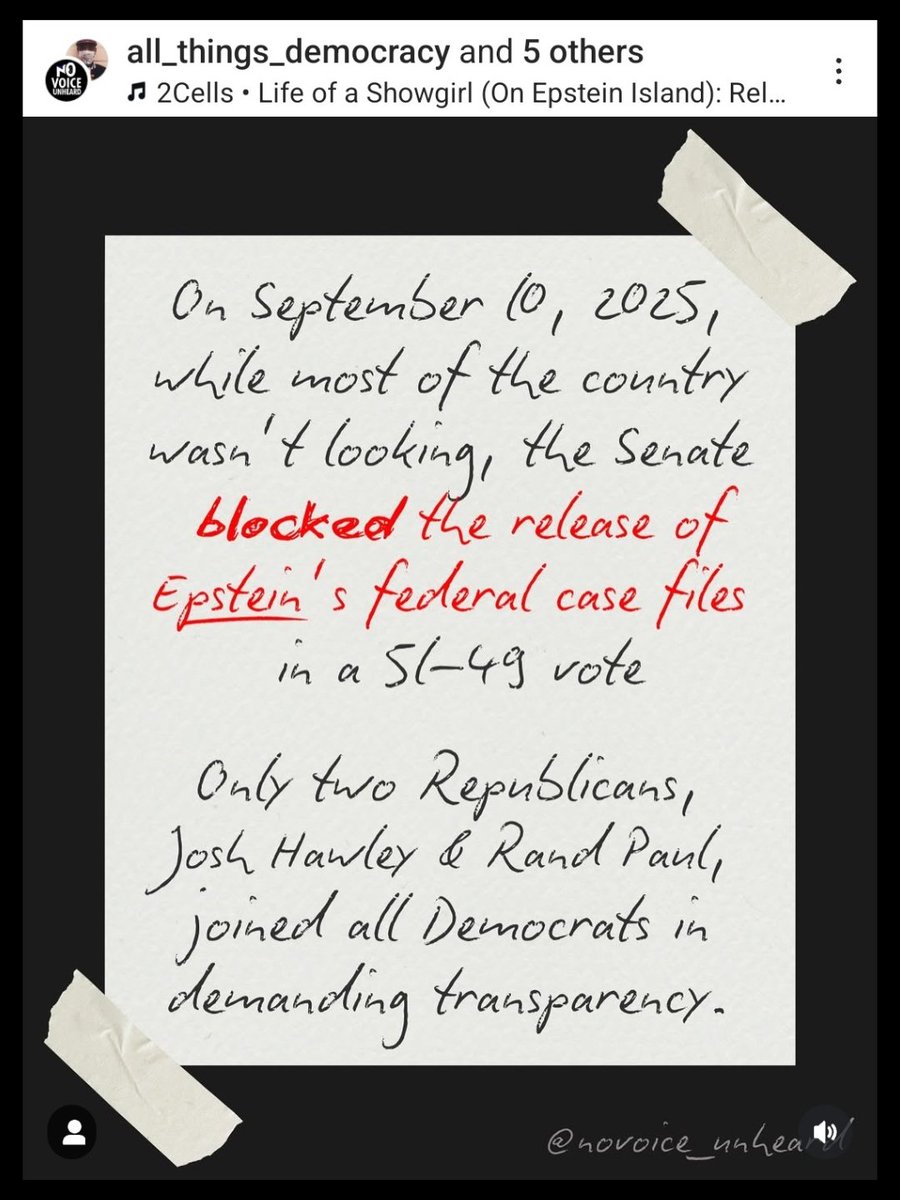 all_things_democracy and 5 others
2Cells • Life of a Showgirl (On Epstein Island): Rel...
NO
VOICE
UNHEARD
On September 10, 2025,
while most of the country
wasn't looking, the Senate
blocked the release of
Epstein's federal case files
in a 51-49 vote
Only two Republicans,
Josh Hawley & Rand Paul,
joined all Democrats in
demanding transparency.
@novoice_unheard